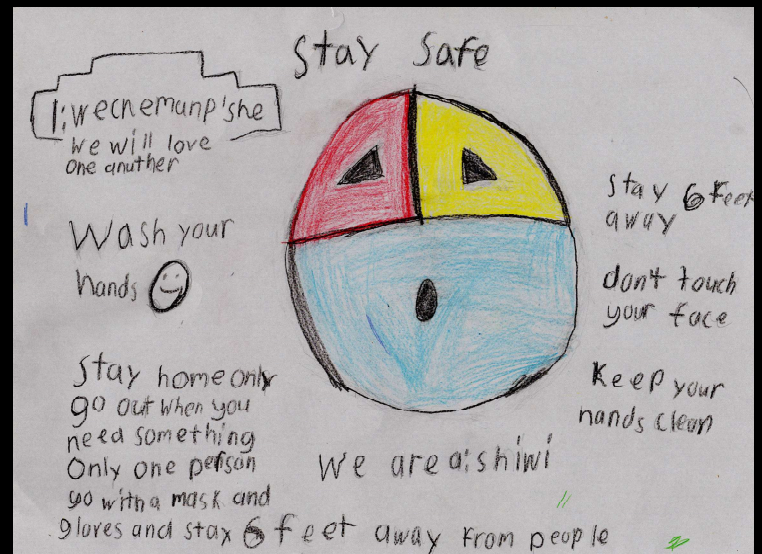 Stay Safe
I:wecnemanp'she
We will love
one anuther
Wash your
hands
Stay home only
go out when you
need something
Only one person
go with a mask and
gloves and stay 6 feet away from people
Stay 6 Feet
away
don't touch
your face
Keep your
hands clean
We are a:shiwi